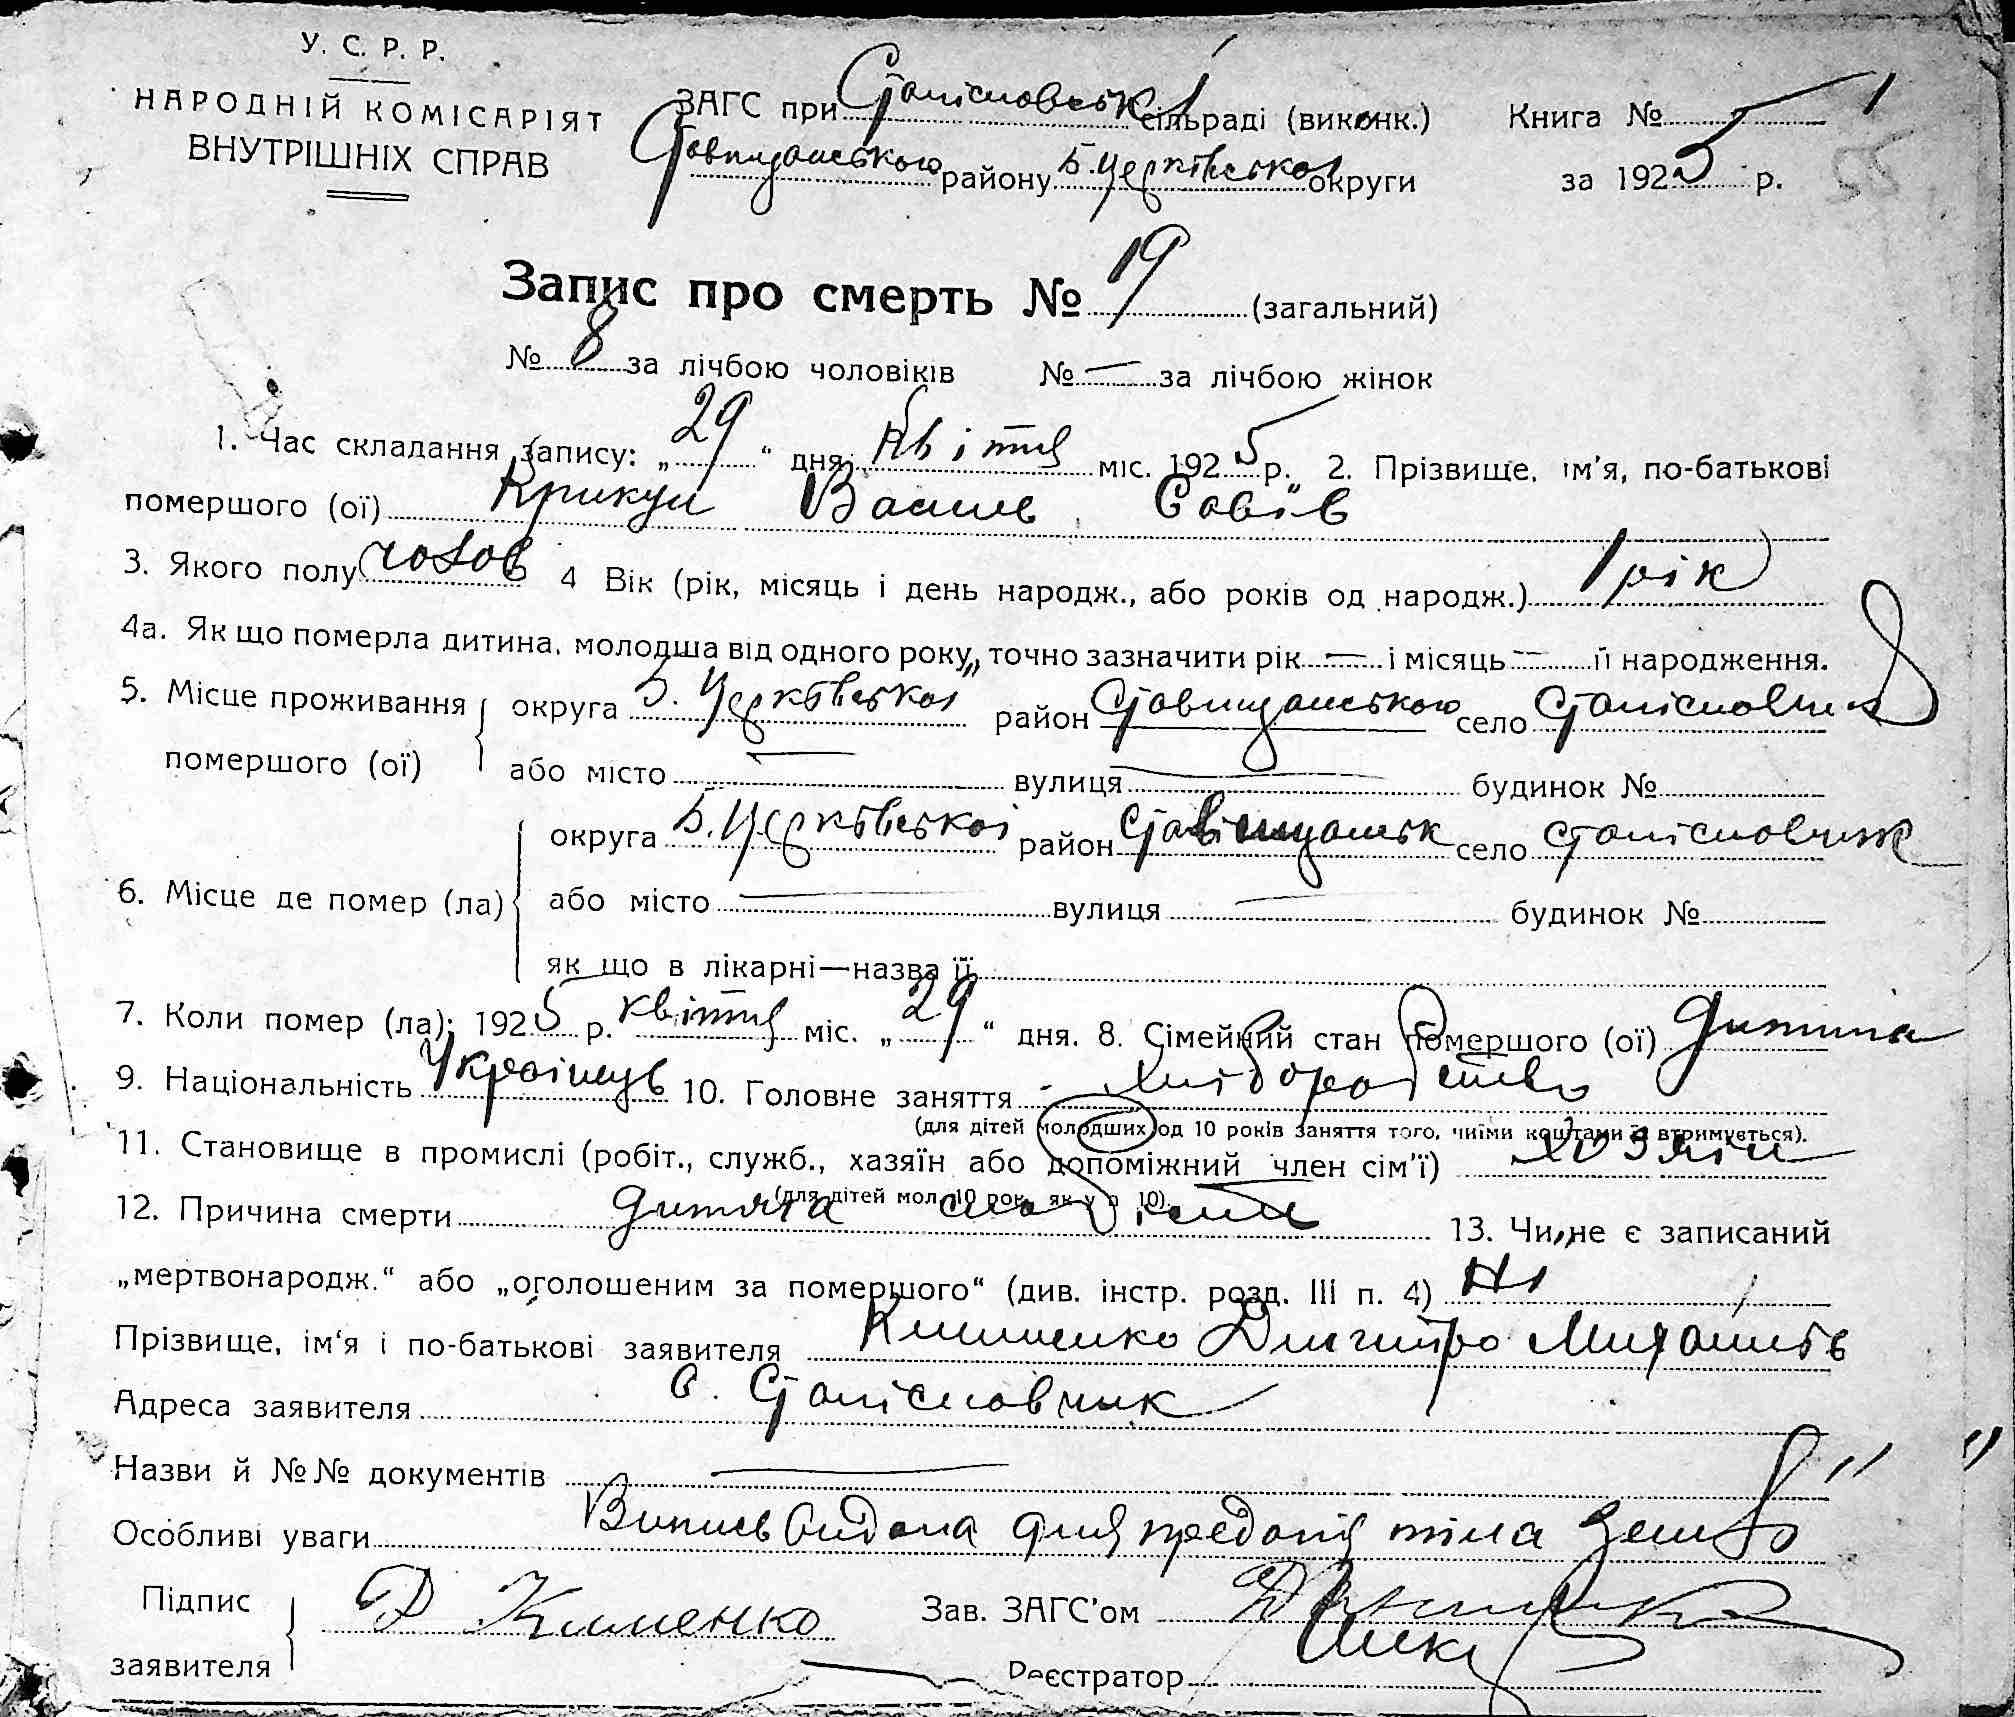 У. С. Р. Р.
НАРОДНІЙ КОМІСАРІЯТ
ВНУТРІШНІХ СПРАВ
ЗАГС при Станіславськ сільраді (виконк.)
Ставищанського району Б. Церківської округи
Книга № 1
за 1925 р.
Запис про смерть № 19 (загальний)
№ 8 за лічбою чоловіків № — за лічбою жінок
1. Час складання запису: „ 29 “ дня Квітня міс. 1925 р. 2. Прізвище, ім'я, по-батькові
помершого (ої) Крикун Василь Савів
3. Якого полу чолов 4 Вік (рік, місяць і день народж., або років од народж.) 1 рік
4а. Як що померла дитина, молодша від одного року, точно зазначити рік — і місяць — її народження.
5. Місце проживання помершого (ої) округа Б. Церківської район Ставищанського село Станіславчик
або місто — вулиця — будинок №
6. Місце де помер (ла) округа Б. Церківської район Ставищанськ село Станіславчик
або місто — вулиця — будинок №
як що в лікарні—назва її
7. Коли помер (ла): 1925 р. квітня міс. „ 29 “ дня. 8. Сімейний стан помершого (ої) дитина
9. Національність Українець 10. Головне заняття хліборобство
(для дітей молодших од 10 років заняття того, чиїми коштами їх втримується).
11. Становище в промислі (робіт., служб., хазяїн або допоміжний член сім'ї) хозяїн
(для дітей мол. 10 рок. як у п. 10).
12. Причина смерти дитяча слабість 13. Чи не є записаний
„мертвонародж.“ або „оголошеним за помершого“ (див. інстр. розд. III п. 4) Ні
Прізвище, ім'я і по-батькові заявителя Клименко Дмитро Михайлів
Адреса заявителя с. Станіславчик
Назви й №№ документів —
Особливі уваги Випись видана для предания тіла землі
Підпис заявителя Д Клименко Зав. ЗАГС'ом
Реєстратор